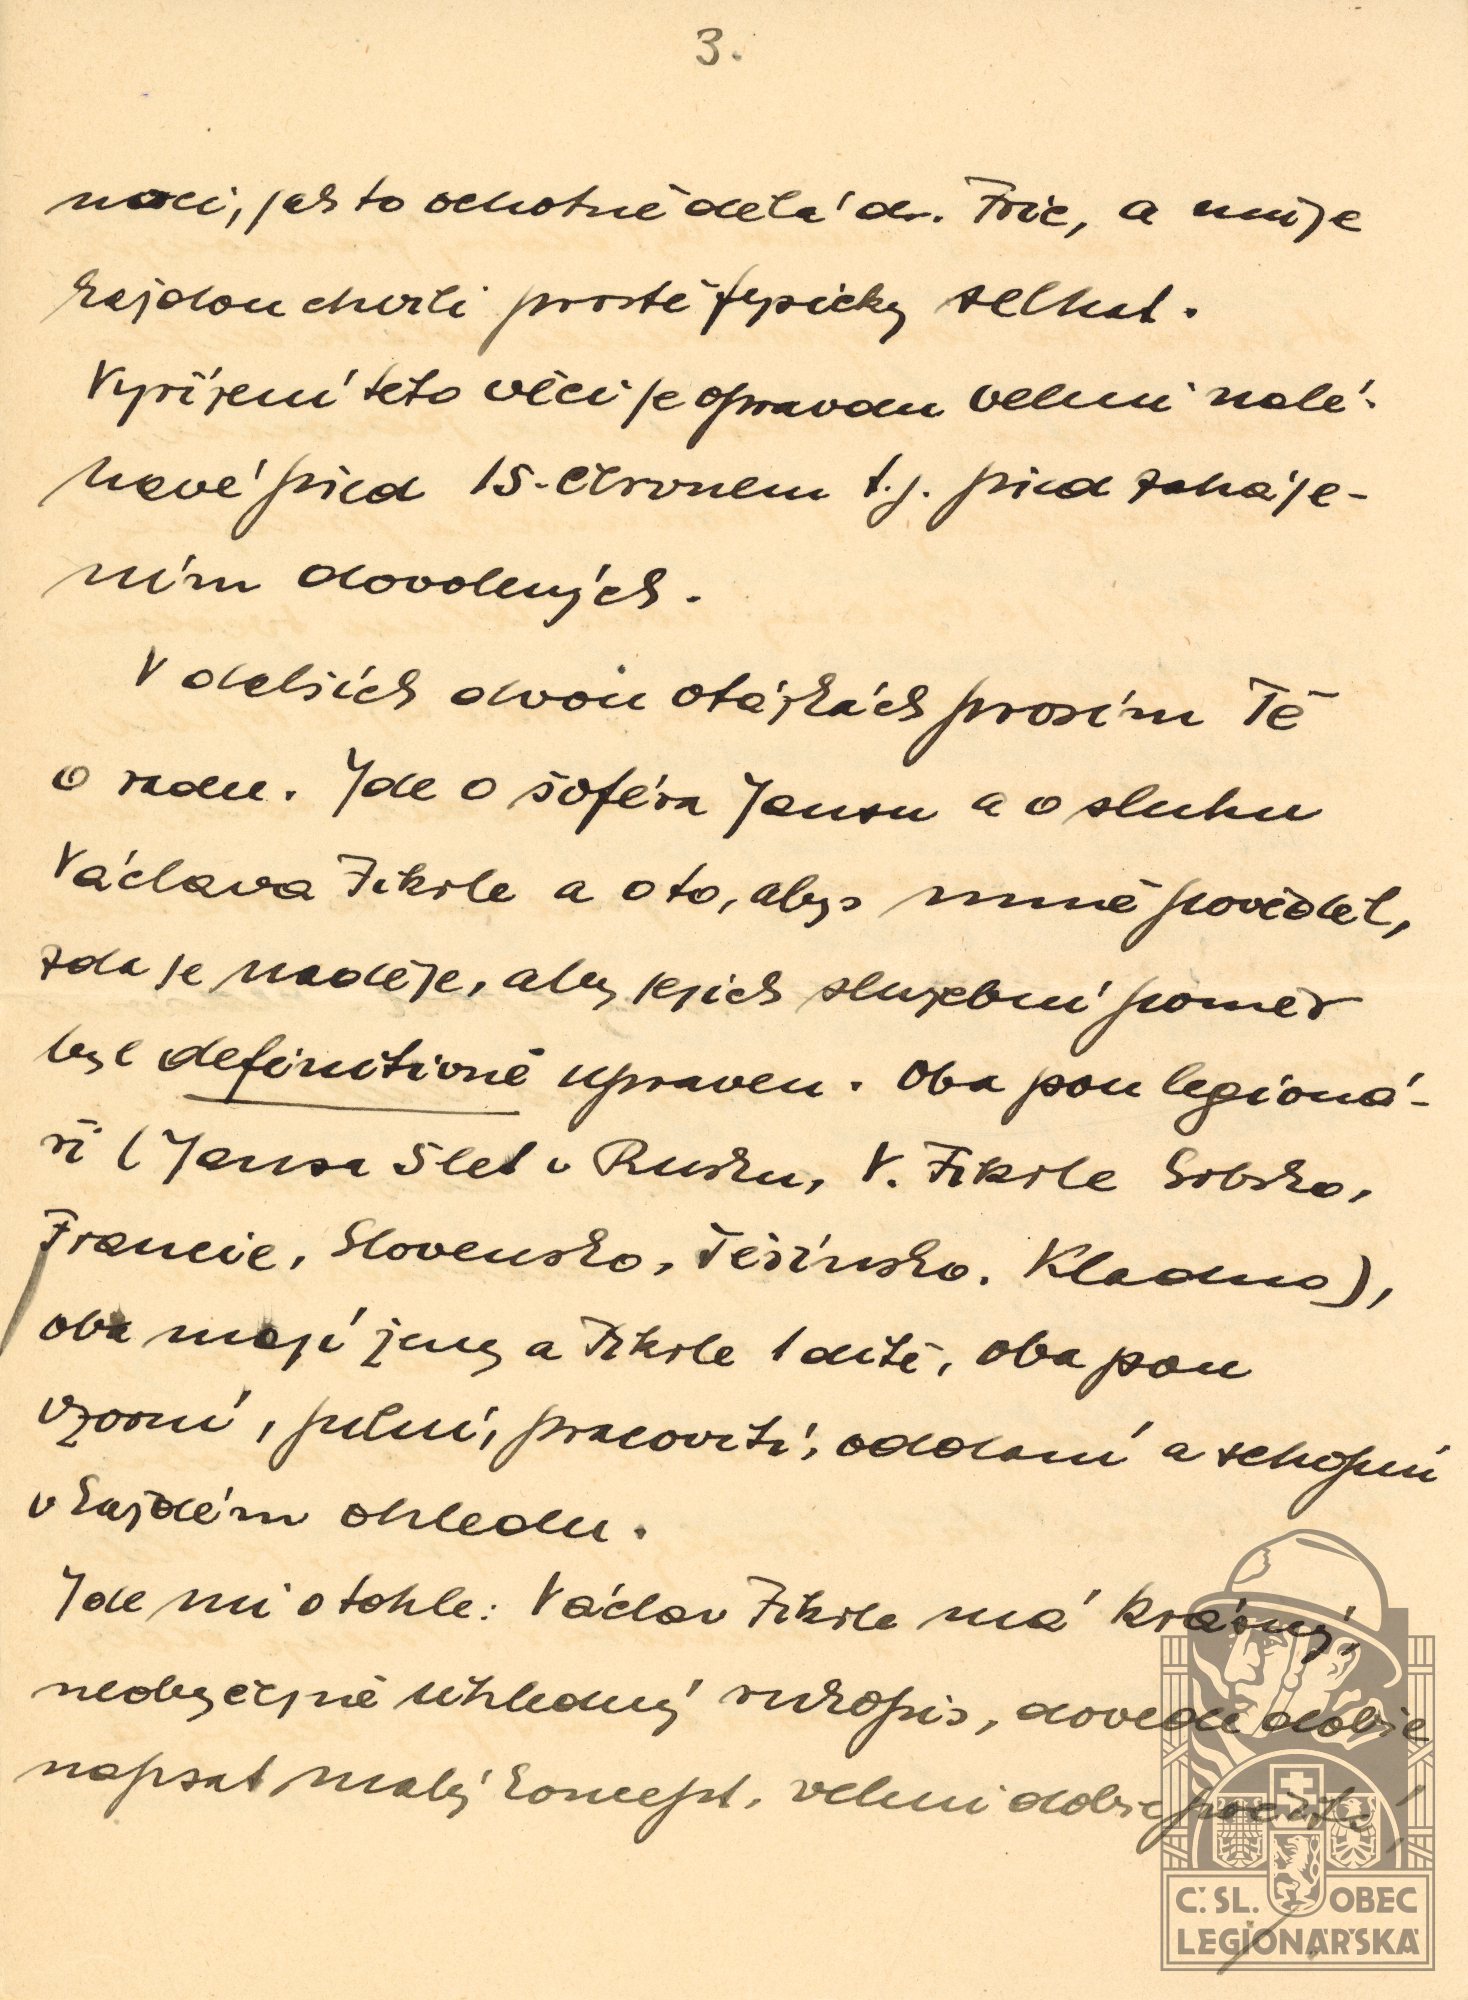 3.
noci, jak to ochotně dělá dr. Fric, a může
každou chvíli prostě fysicky selhat.
Vyřízení této věci je opravdu velmi nalé-
havé před 15. červnem t.j. před zaháje-
ním dovolených.
V dalších dvou otázkách prosím Tě
o radu. Jde o šoféra Jansu a o sluhu
Václava Fikrle a o to, abys mně pověděl,
zda je naděje, aby jejich služební poměr
byl definitivně upraven. Oba jsou legioná-
ři (Jansa 5 let v Rusku, V. Fikrle Srbsko,
Francie, Slovensko, Těšínsko. Kladno),
oba mají ženy a Fikrle 1 dítě, oba jsou
vzorní, pilní, pracovití, oddaní a schopní
v každém ohledu.
Jde mi o tohle: Václav Fikrle má krásný,
neobyčejně úhledný rukopis, dovede dobře
napsat malý koncept, velmi dobře počítá,
Č. SL. OBEC
LEGIONÁŘSKÁ